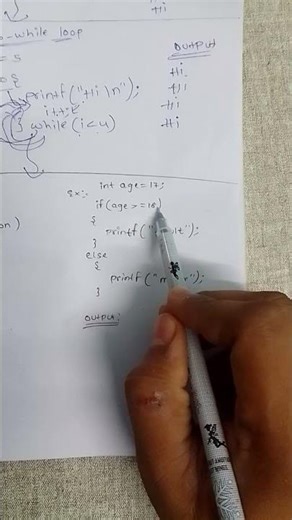 Hi
-while loop
OUTPUT
Hi
printf("Hi \n");
Hi
i++;
Hi
} while (i<4)
Hi
Ex:- int age = 17;
if (age >= 18)
{
printf("
}
else
{
printf("
}
OUTPUT: